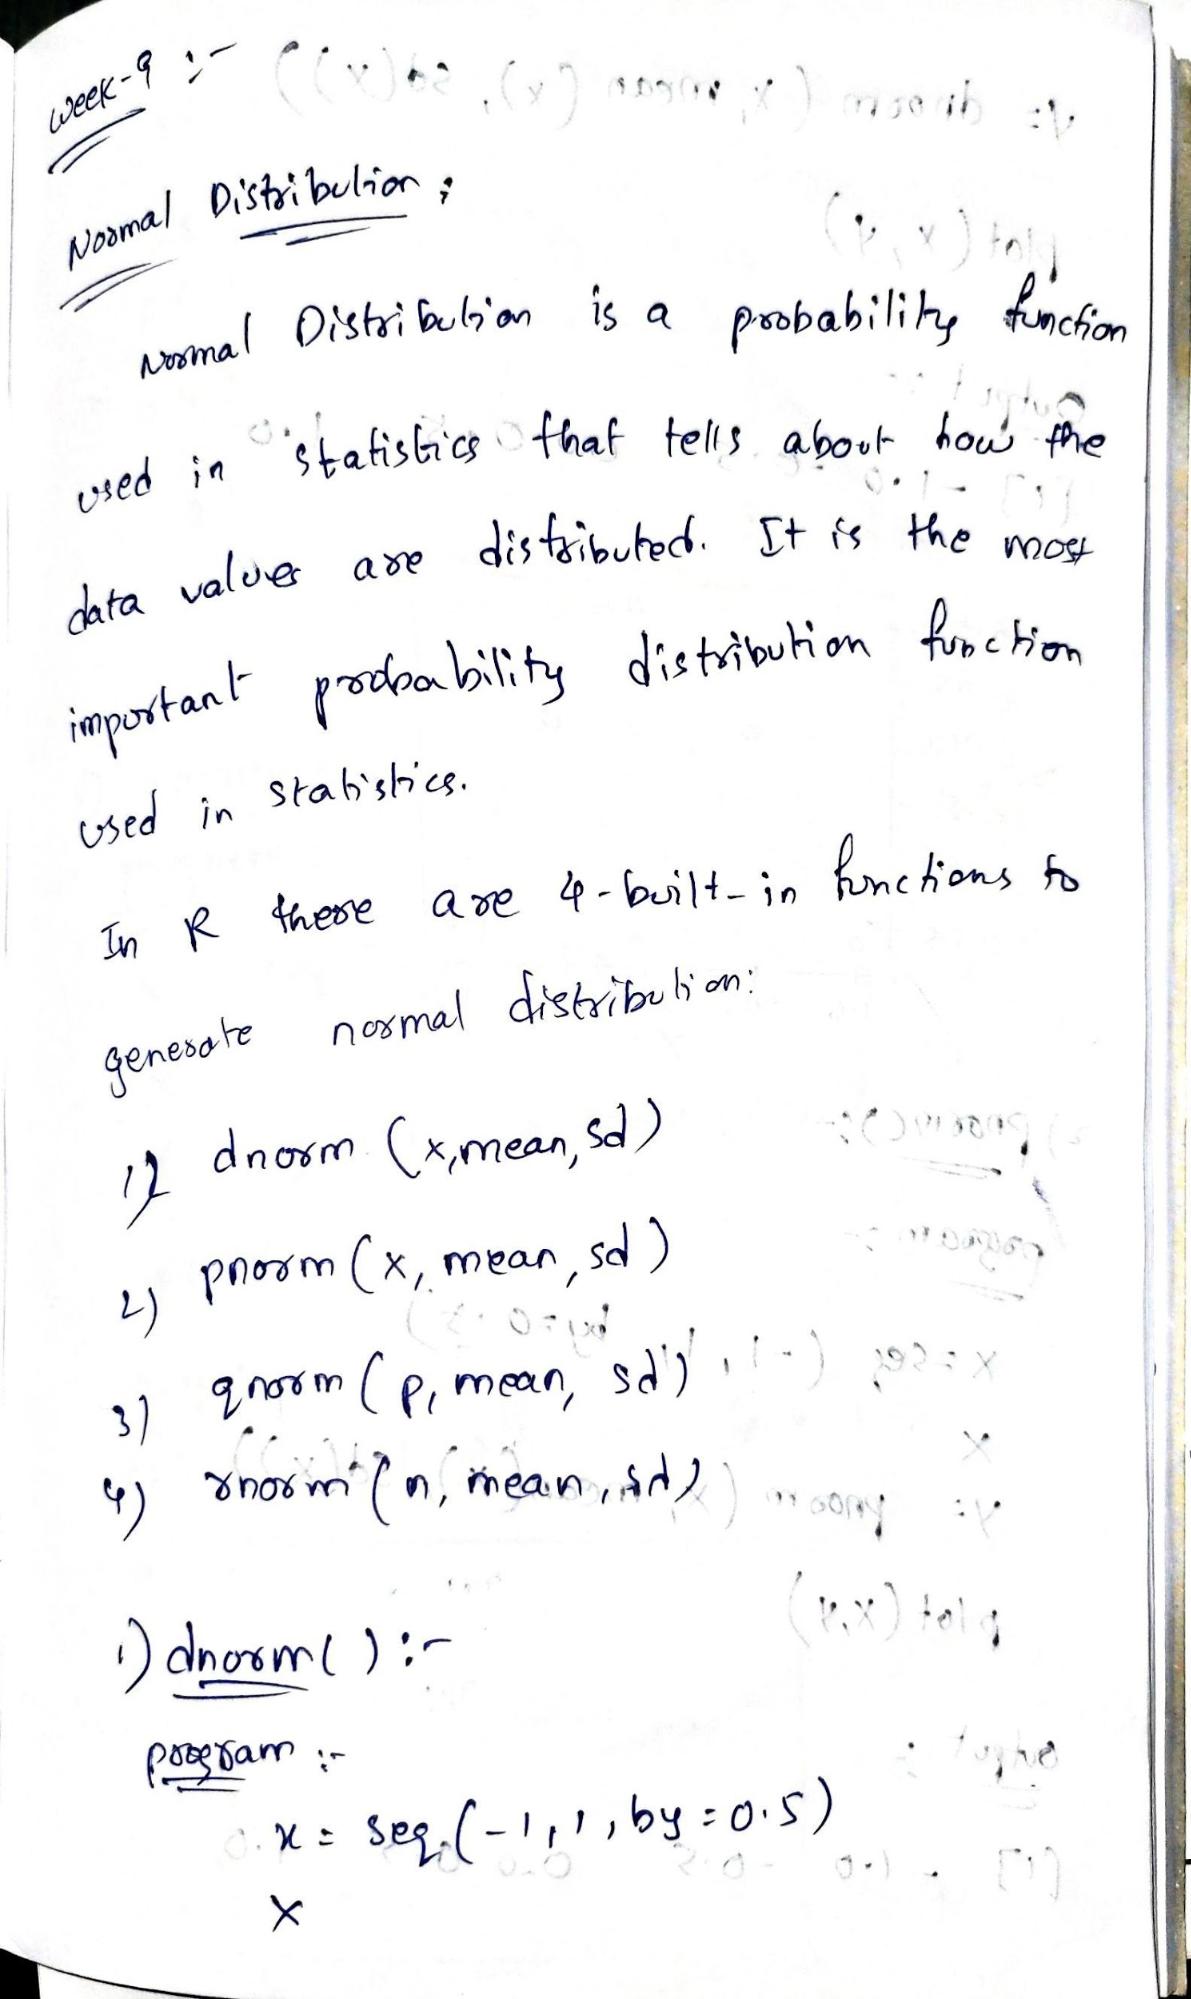 Week-9 :-
Normal Distribution ;
Normal Distribution is a probability function
used in statistics that tells about how the
data values are distributed. It is the most
important probability distribution function
used in statistics.
In R there are 4-built-in functions to
generate normal distribution:
1) dnorm (x,mean,sd)
2) pnorm (x, mean, sd)
3) qnorm (p, mean, sd)
4) rnorm (n, mean, sd)
1) dnorm( ) :-
program :-
x = seq (-1, 1, by = 0.5)
x